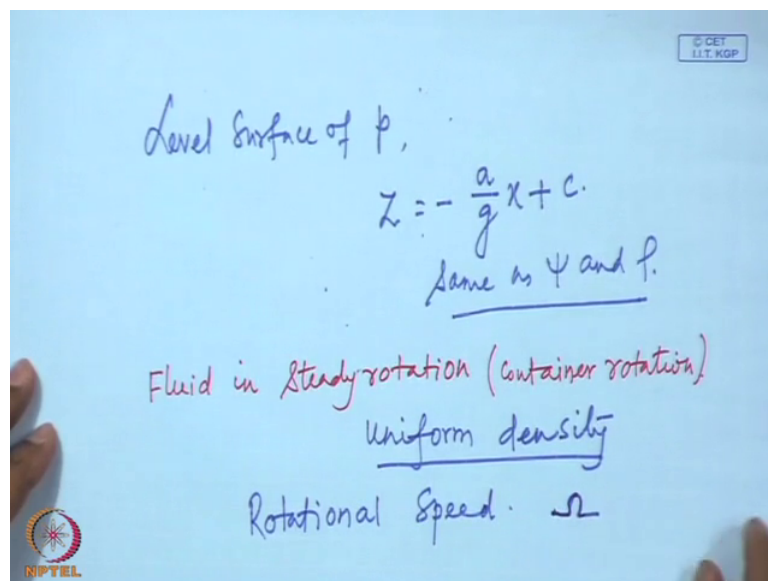 © CET
I.I.T. KGP
Level Surface of p,
z = - a/g x + c.
Same as ψ and ρ.
Fluid in Steady rotation (Container rotation)
Uniform density
Rotational Speed. Ω
NPTEL